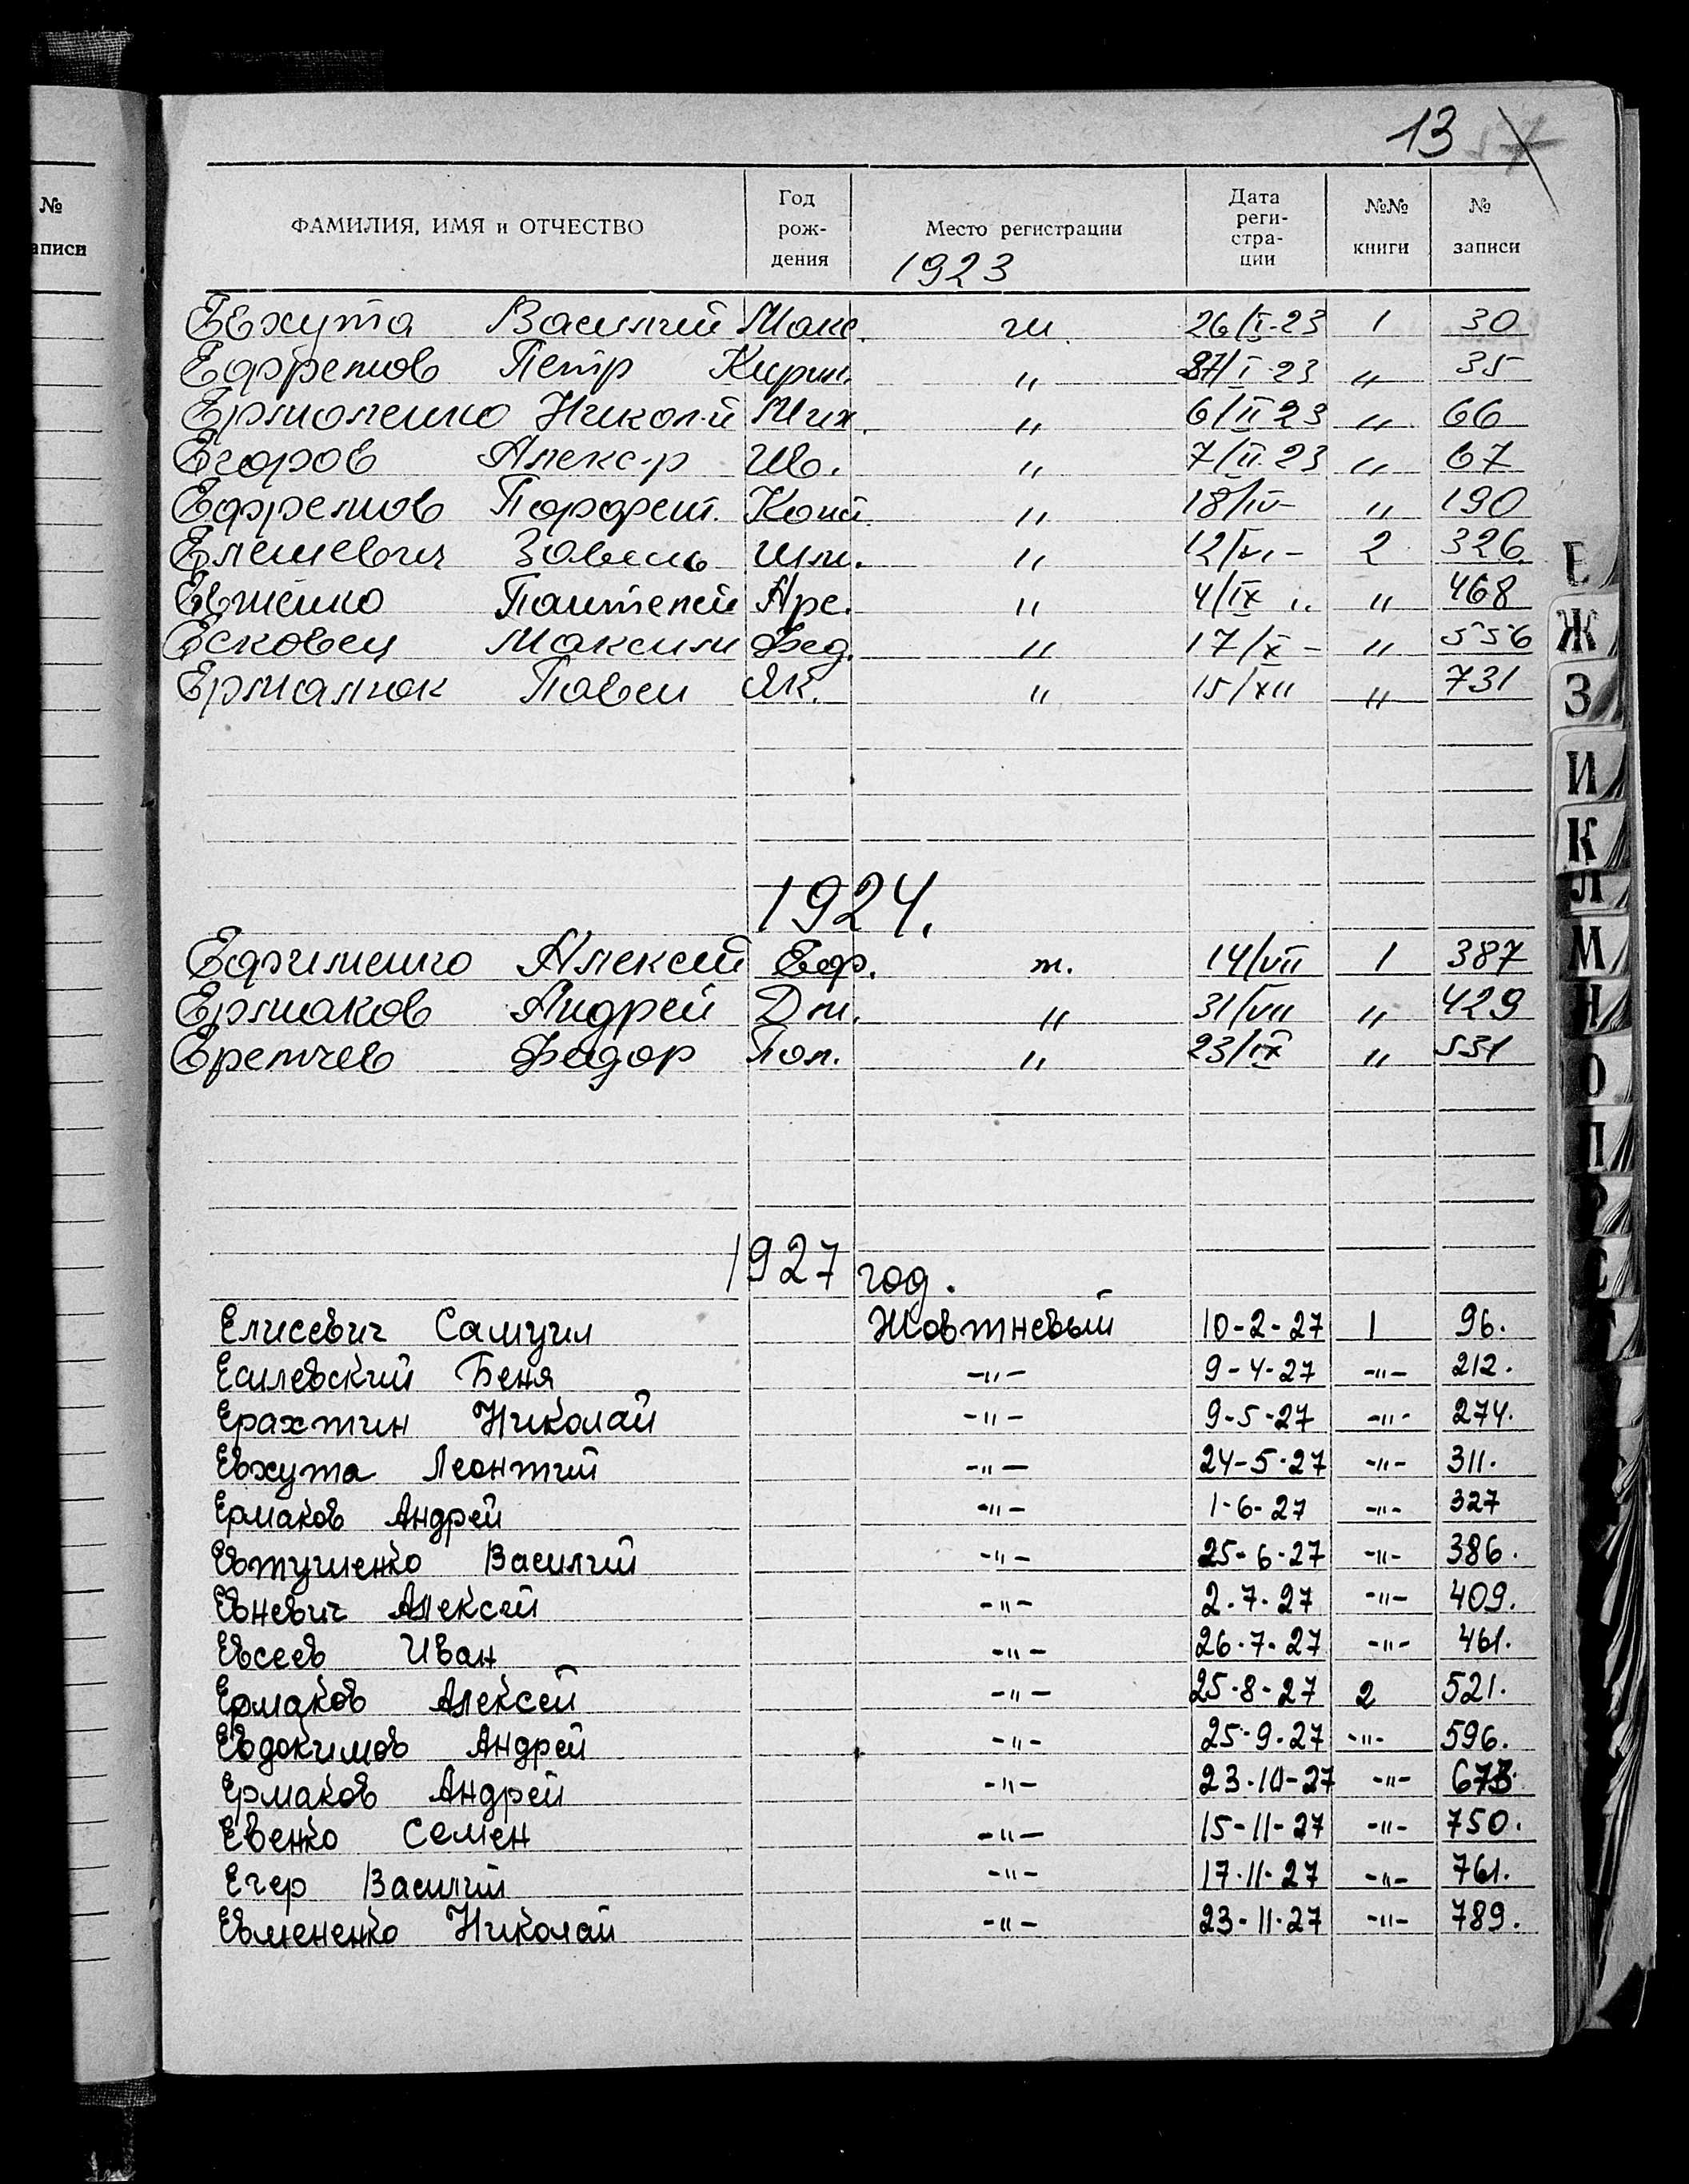 13
№
записи
ФАМИЛИЯ, ИМЯ и ОТЧЕСТВО Год рож- дения Место регистрации Дата реги- стра- ции №№ книги № записи
1923
Евхута Василий Макс. 26/I-23 1 30
Ефремов Петр Кирил. " 27/I-23 " 35
Ермоленко Никол-й Мих. " 6/II 23 " 66
Егоров Алекс-р Ив. " 7/II-23 " 67
Ефремов Порфент. Конт. " 18/IV- " 190
Елешевич Завель Шм. " 12/VI- 2 326
Евтенко Пантелей Арс. " 4/IX " " 468
Есковец Максим Фед. " 17/X- " 556
Ермалюк Павел Як. " 15/XII " 731
1924.
Ефименко Алексей Еф. т. 14/VII 1 387
Ермаков Андрей Дм. " 31/VII " 429
Еремчев Федор Пол. " 23/IX " 531
1927 год.
Елисевич Самуил Жовтневый 10-2-27 1 96.
Есилевский Беня -"- 9-4-27 -"- 212.
Ерахтин Николай -"- 9-5-27 -"- 274.
Евхута Леонтий -"- 24-5-27 -"- 311.
Ермаков Андрей -"- 1-6-27 -"- 327
Евтушенко Василий -"- 25-6-27 -"- 386.
Евневич Алексей -"- 2.7.27 -"- 409.
Евсеев Иван -"- 26.7.27 -"- 461.
Ермаков Алексей -"- 25-8-27 2 521.
Евдокимов Андрей -"- 25-9-27 -"- 596.
Ермаков Андрей -"- 23-10-27 -"- 673.
Евенко Семен -"- 15-11-27 -"- 750.
Егер Василий -"- 17-11-27 -"- 761.
Евмененко Николай -"- 23-11-27 -"- 789.
Е
Ж
З
И
К
Л
М
Н
О
П
Р
С